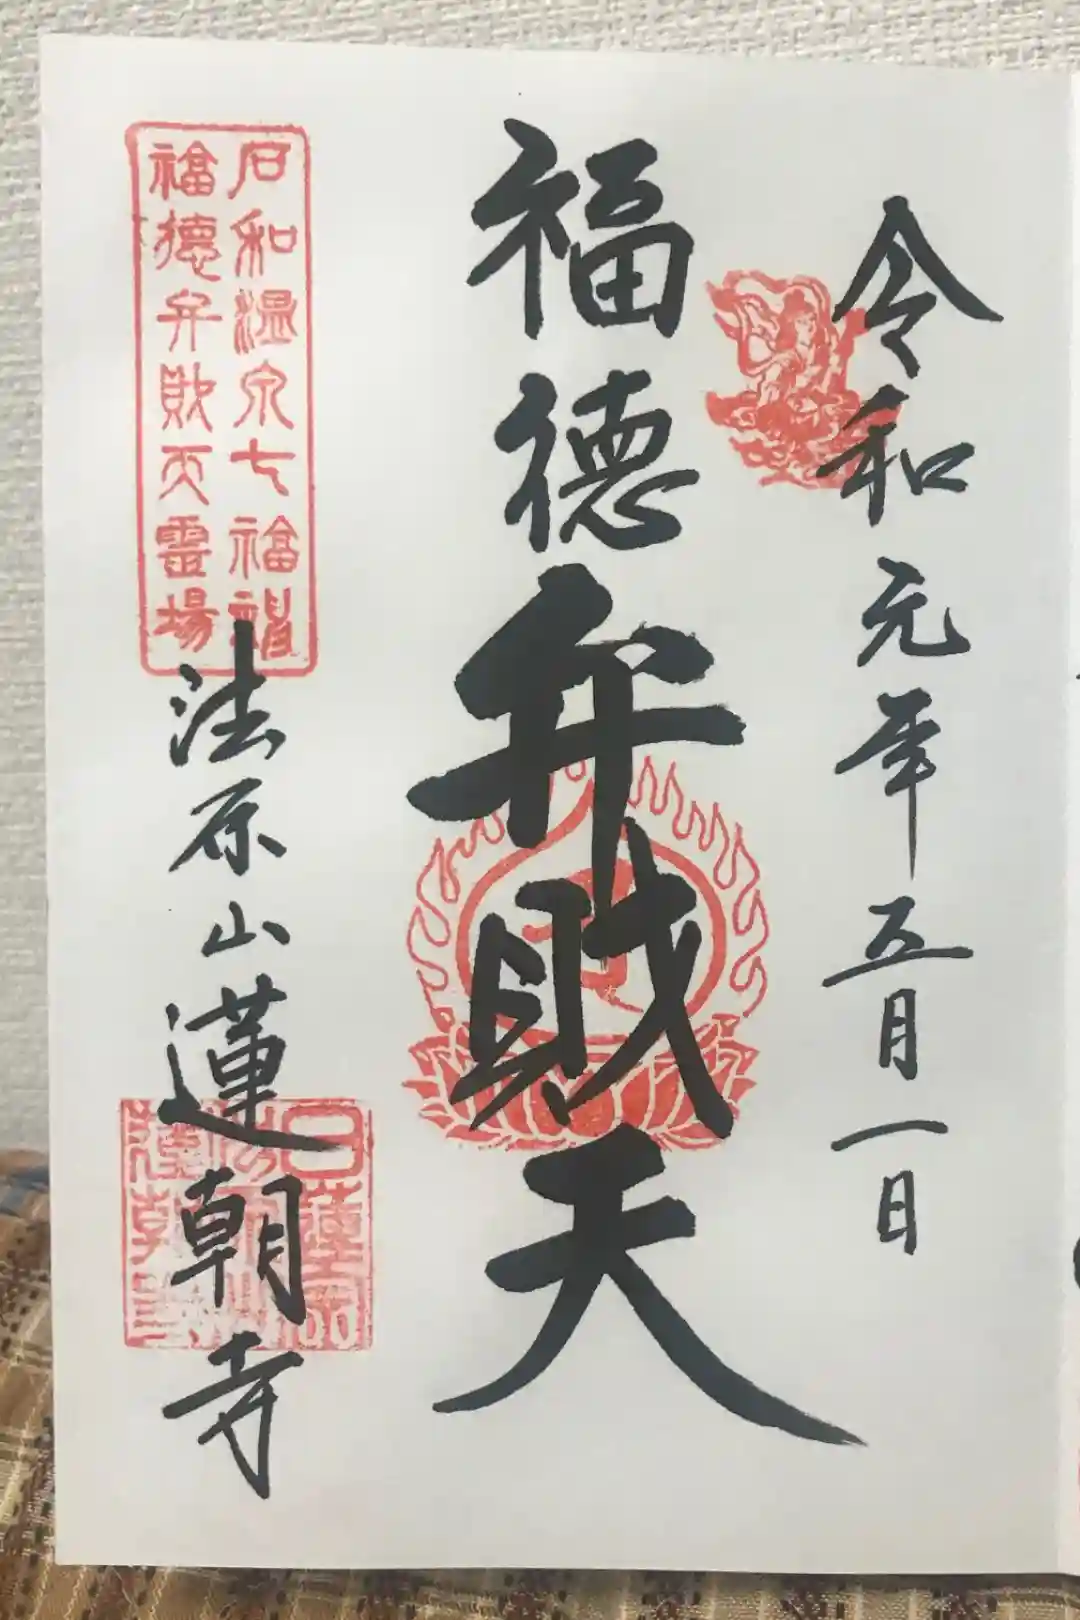 令和元年五月一日
福德弁財天
石和温泉七福神
福德弁財天霊場
法原山蓮朝寺
日蓮宗